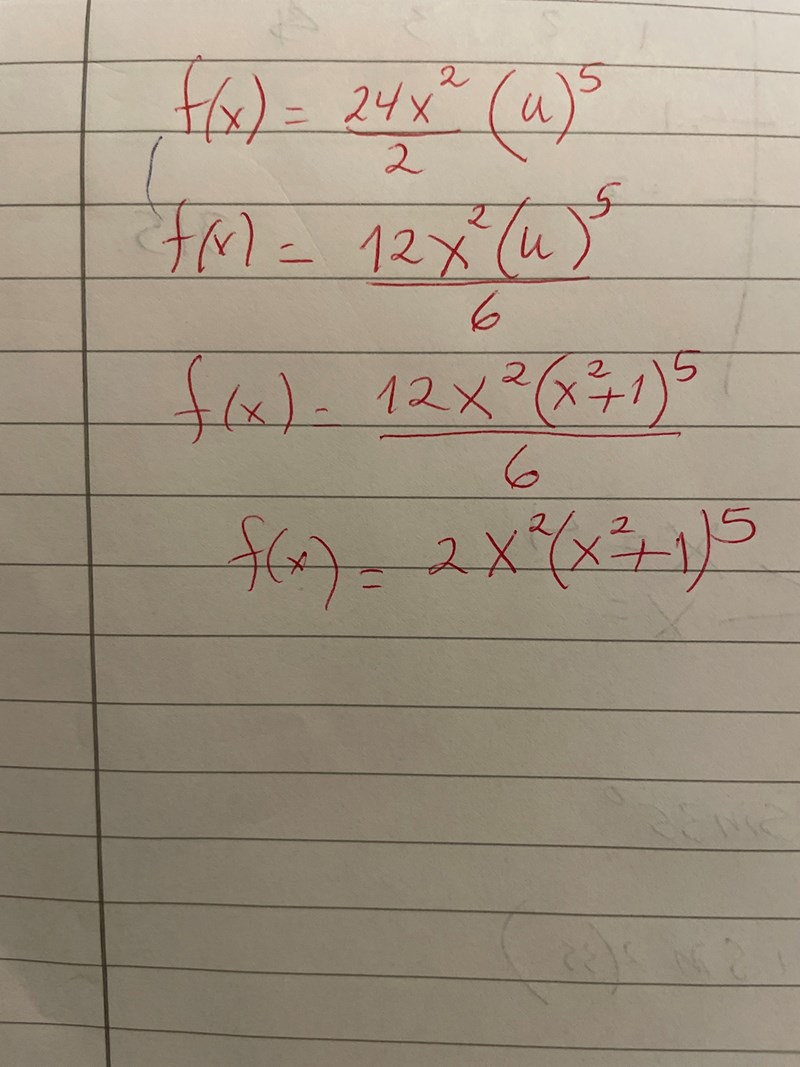 f(x) = 24x²/2 (u)⁵
f(x) = 12x²(u)⁵/6
f(x) = 12x²(x²+1)⁵/6
f(x) = 2x²(x²+1)⁵